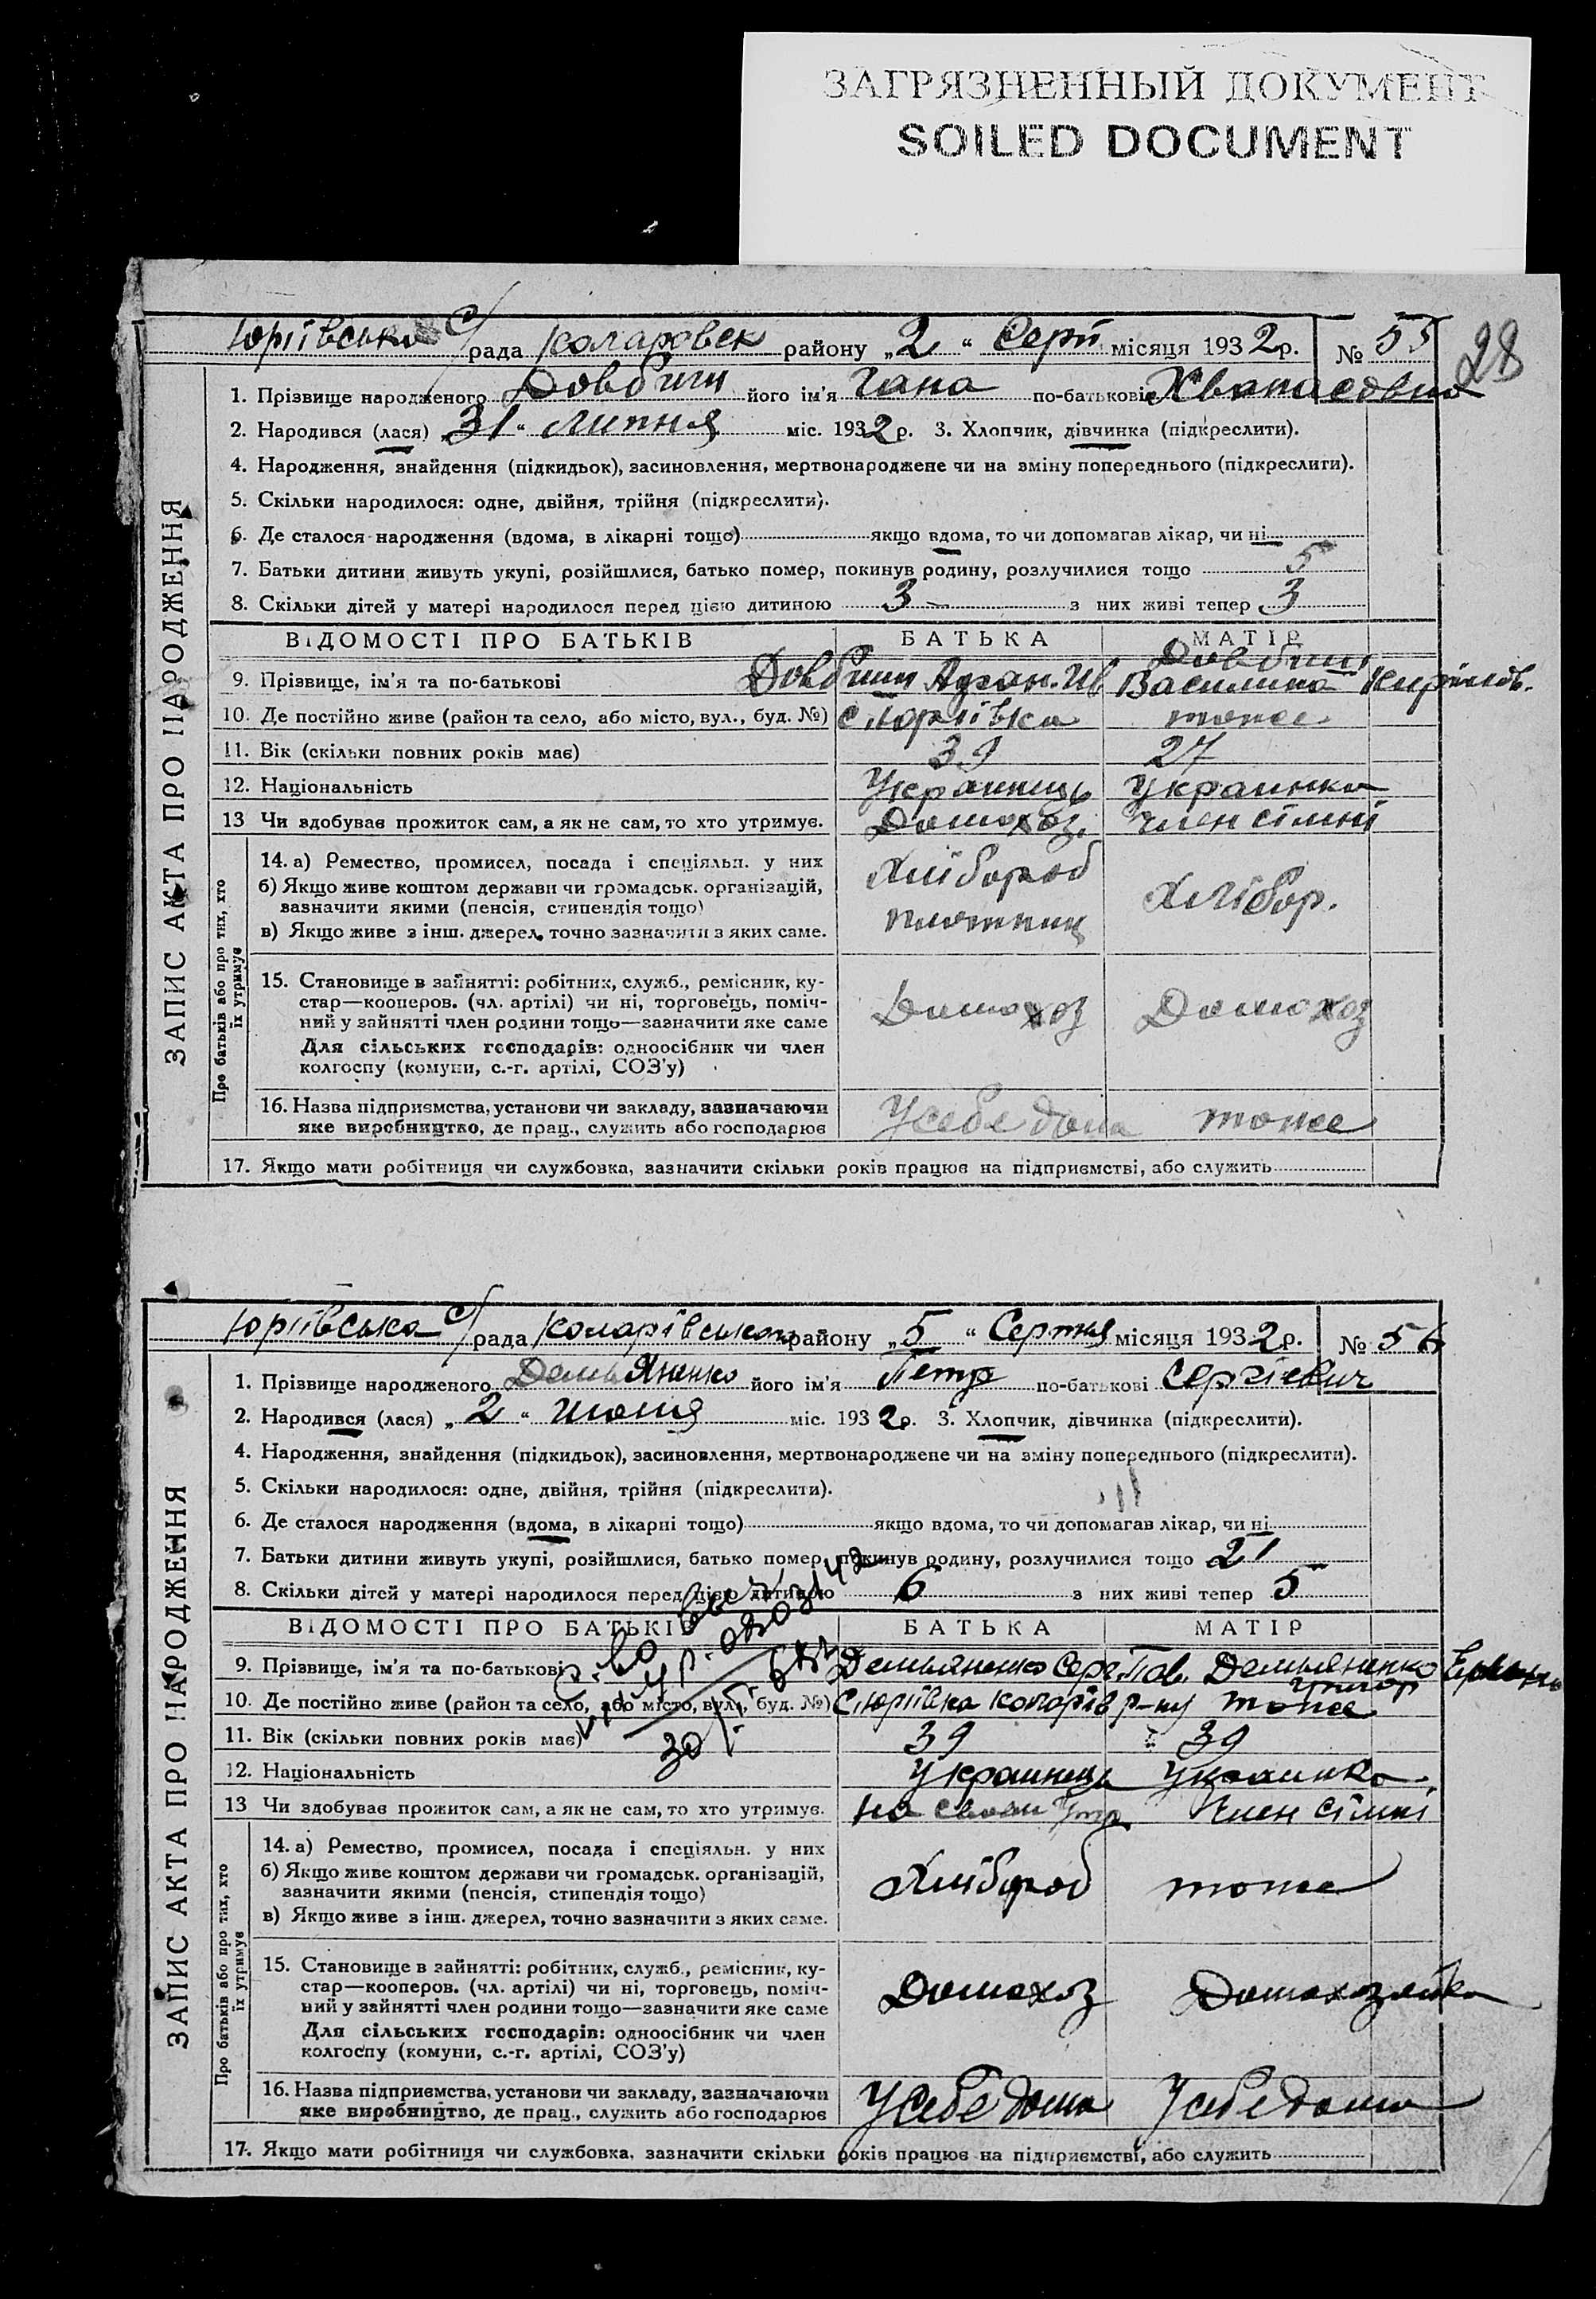 ЗАГРЯЗНЕННЫЙ ДОКУМЕНТ
SOILED DOCUMENT
28
Юріївська с/рада Коларовск району „2“ Серп. місяця 1932р. № 55
1. Прізвище народженого Довбиш його ім'я Гапа по-батькові
2. Народився (лася) „31“ Липня міс. 1932р. 3. Хлопчик, дівчинка (підкреслити).
4. Народження, знайдення (підкидьок), засиновлення, мертвонароджене чи на зміну попереднього (підкреслити).
5. Скільки народилося: одне, двійня, трійня (підкреслити).
6. Де сталося народження (вдома, в лікарні тощо) якщо вдома, то чи допомагав лікар, чи ні
7. Батьки дитини живуть укупі, розійшлися, батько помер, покинув родину, розлучилися тощо 5
8. Скільки дітей у матері народилося перед цією дитиною 3 — з них живі тепер 3
ВІДОМОСТІ ПРО БАТЬКІВ БАТЬКА МАТІР
9. Прізвище, ім'я та по-батькові Довбиш Ів Довбиш Василина
10. Де постійно живе (район та село, або місто, вул., буд. №) с Юріївка тоже
11. Вік (скільки повних років має) 39 27
12. Національність Украинець Украинка
13 Чи здобуває прожиток сам, а як не сам, то хто утримує. Домохоз. Член сімні
14. а) Ремество, промисел, посада і спеціяльн. у них
б) Якщо живе коштом держави чи громадськ. організацій,
зазначити якими (пенсія, стипендія тощо)
в) Якщо живе з інш. джерел, точно зазначити з яких саме.
Хлібороб
плотниц
Хлібор.
15. Становище в зайнятті: робітник, служб., ремісник, ку-
стар—кооперов. (чл. артілі) чи ні, торговець, поміч-
ний у зайнятті член родини тощо—зазначити яке саме
Для сільських господарів: одноосібник чи член
колгоспу (комуни, с.-г. артілі, СОЗ'у)
Домохоз Домохоз
16. Назва підприємства, установи чи закладу, зазначаючи
яке виробництво, де прац., служить або господарює
У себе дома тоже
17. Якщо мати робітниця чи службовка, зазначити скільки років працює на підприємстві, або служить
ЗАПИС АКТА ПРО НАРОДЖЕННЯ
Про батьків або про тих, хто
їх утримує
Юріївська с/рада Коларівського району „5“ Серпня місяця 1932р. № 56
1. Прізвище народженого Демьяненко його ім'я Петр по-батькові Сергієвич
2. Народився (лася) „2“ міс. 1932р. 3. Хлопчик, дівчинка (підкреслити).
4. Народження, знайдення (підкидьок), засиновлення, мертвонароджене чи на зміну попереднього (підкреслити).
5. Скільки народилося: одне, двійня, трійня (підкреслити).
6. Де сталося народження (вдома, в лікарні тощо) якщо вдома, то чи допомагав лікар, чи ні
7. Батьки дитини живуть укупі, розійшлися, батько помер, покинув родину, розлучилися тощо 21
8. Скільки дітей у матері народилося перед цією дитиною 6 з них живі тепер 5
ВІДОМОСТІ ПРО БАТЬКІВ БАТЬКА МАТІР
9. Прізвище, ім'я та по-батькові Демьяненко Серг. Пав. Демьяненко
10. Де постійно живе (район та село, або місто, вул., буд. №) с Юріївка Коларів р-ну тоже
11. Вік (скільки повних років має) 39 39
12. Національність Украинець Украинка
13 Чи здобуває прожиток сам, а як не сам, то хто утримує. на своем Утр. Член сімні
14. а) Ремество, промисел, посада і спеціяльн. у них
б) Якщо живе коштом держави чи громадськ. організацій,
зазначити якими (пенсія, стипендія тощо)
в) Якщо живе з інш. джерел, точно зазначити з яких саме.
Хлібороб тоже
15. Становище в зайнятті: робітник, служб., ремісник, ку-
стар—кооперов. (чл. артілі) чи ні, торговець, поміч-
ний у зайнятті член родини тощо—зазначити яке саме
Для сільських господарів: одноосібник чи член
колгоспу (комуни, с.-г. артілі, СОЗ'у)
Домохоз Домохозяйка
16. Назва підприємства, установи чи закладу, зазначаючи
яке виробництво, де прац., служить або господарює
У себе дома У себе дома
17. Якщо мати робітниця чи службовка, зазначити скільки років працює на підприємстві, або служить
ЗАПИС АКТА ПРО НАРОДЖЕННЯ
Про батьків або про тих, хто
їх утримує